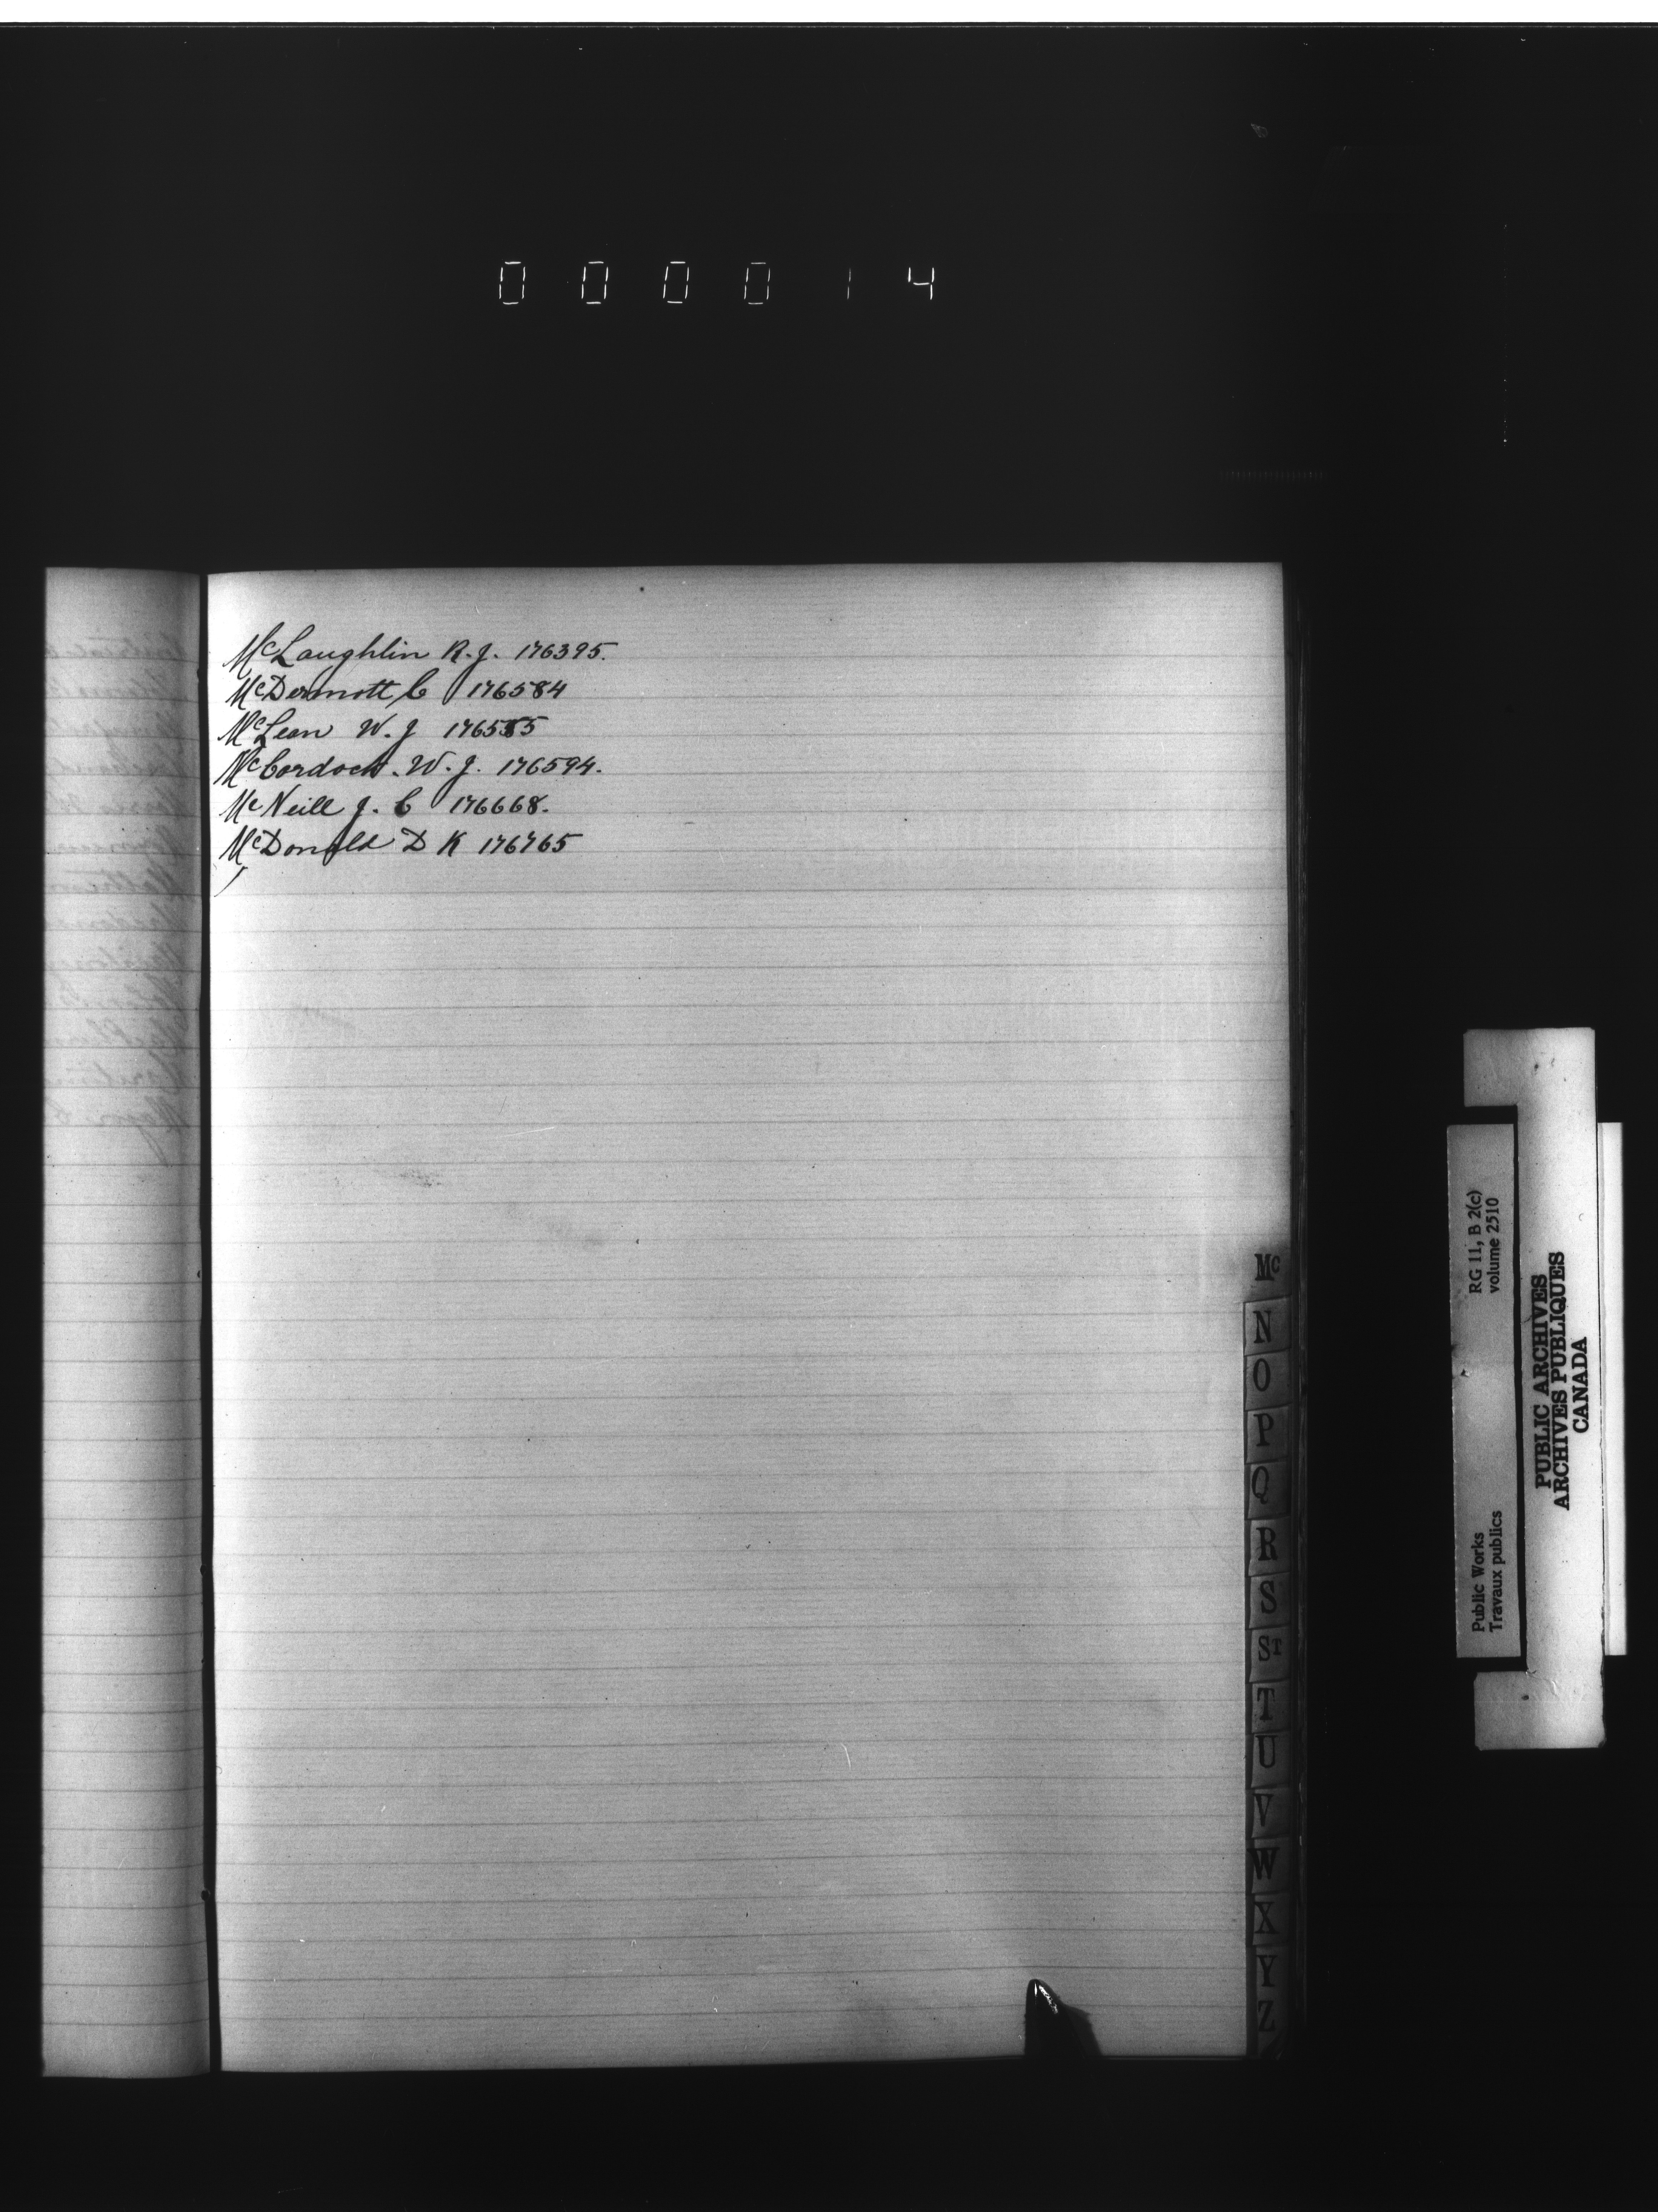 000014
McLaughlin R. J. 176395.
McDermott C 176584
McLean W. J 176585
McCordock. W. J. 176594.
McNeill J. C 176668.
McDonald D K 176765
Mc
N
O
P
Q
R
S
ST
T
U
V
W
X
Y
Z
Public Works
Travaux publics
RG 11, B 2(c)
volume 2510
PUBLIC ARCHIVES
ARCHIVES PUBLIQUES
CANADA